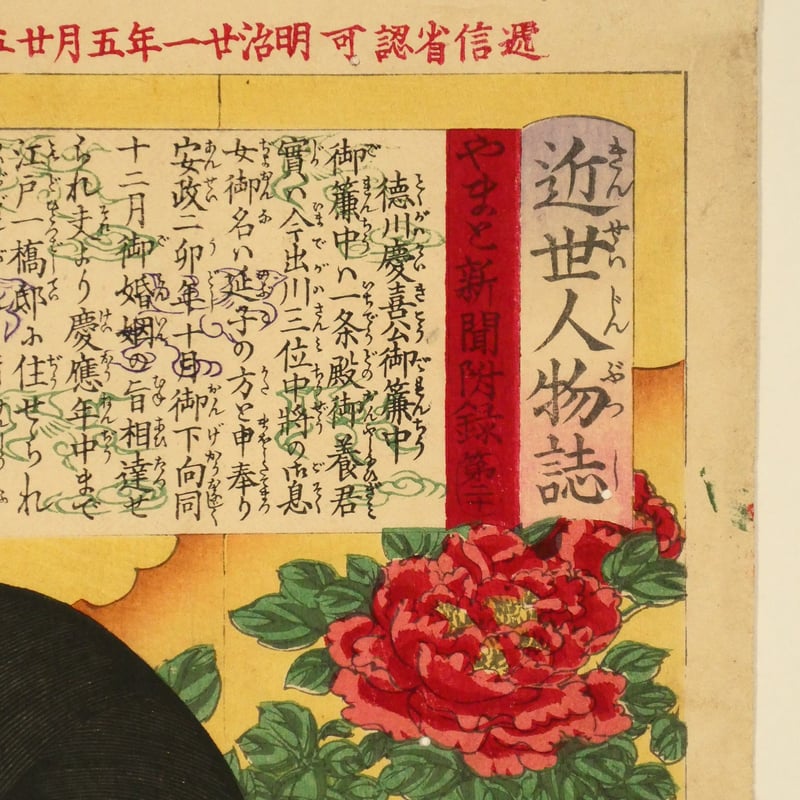 遞信省認可 明治廿一年五月廿
近世人物誌
やまと新聞附録 第二十
徳川慶喜公御簾中
御簾中ハ一条殿御養君
實ハ今出川三位中将の御息
女御名ハ延子の方と申奉り
安政二卯年十月御下向同
十二月御婚姻の旨相達せ
られ夫より慶應年中まで
江戸一橋邸に住せられ